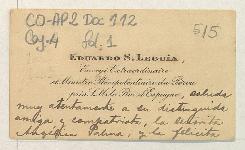 CO-AP2 Doc 112
Caj-4 Fol. 1
515
EDUARDO S. LEGUÍA,
Envoyé Extraordinaire
et Ministre Plénipotentiaire du Pérou
près S. M. le Roi d'Espagne, saluda
muy atentamente a su distinguida
amiga y compatriota, la señorita
Angélica Palma, y la felicita